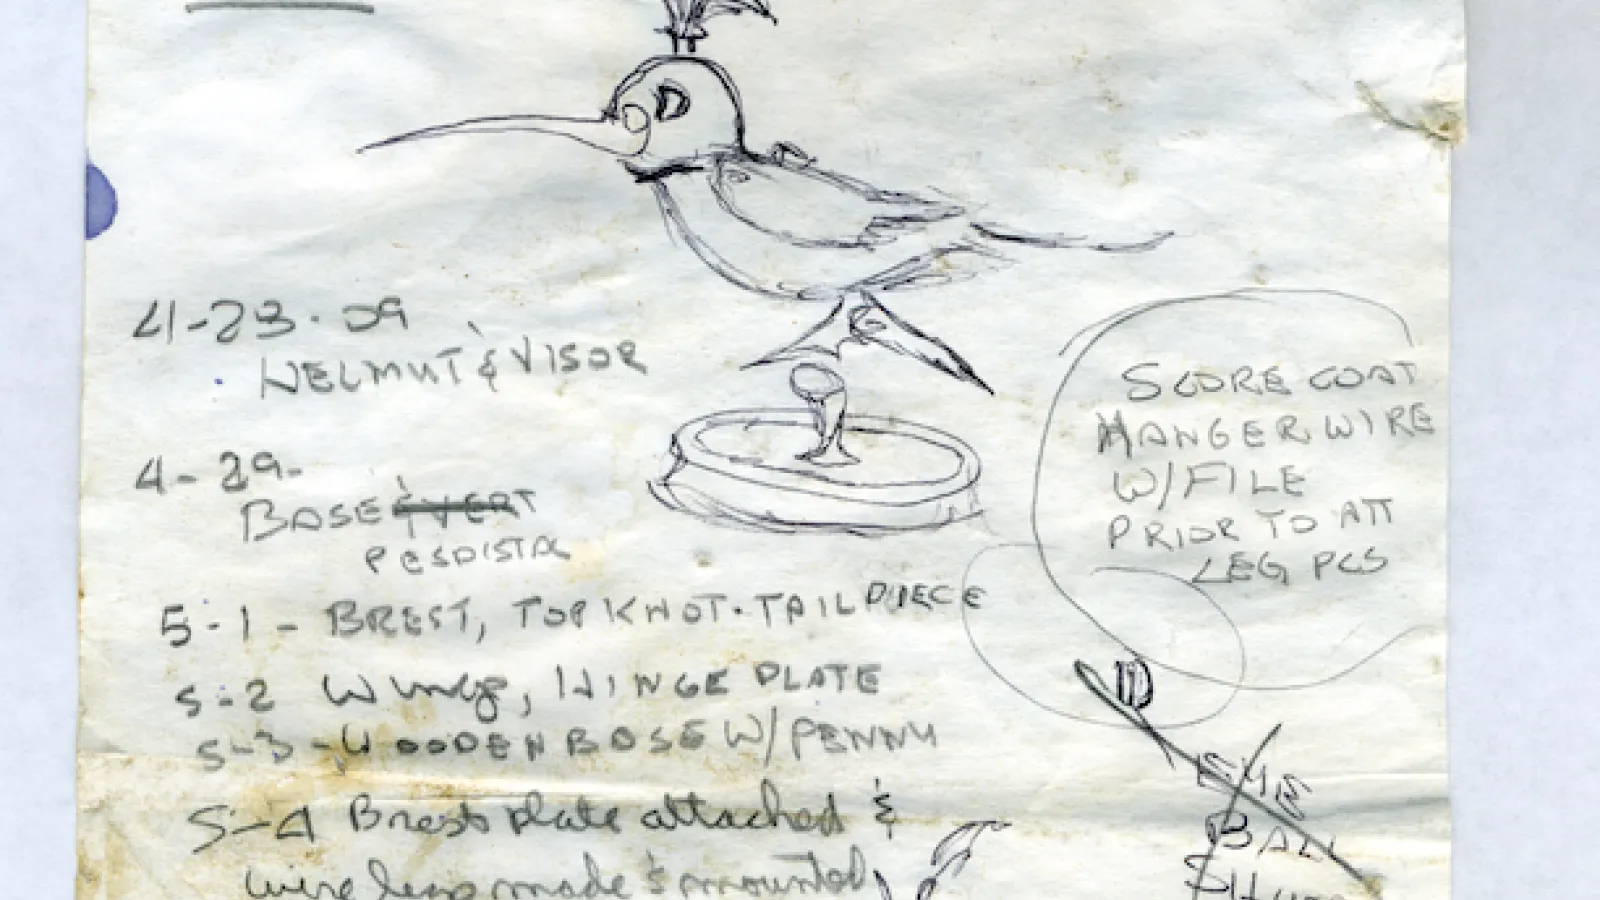 4-23-09
HELMUT & VISOR
4-29-
BASE & VERT
PESDISTAL
5-1- BREST, TOPKNOT-TAILPIECE
5-2 Wings, HINGE PLATE
5-3-WOODEN BASE W/PENNY
5-4 Brest plate attached &
wire legs made & mounted
SCORE COAT
HANGER WIRE
W/FILE
PRIOR TO ATT
LEG PCS
EYE
BALL